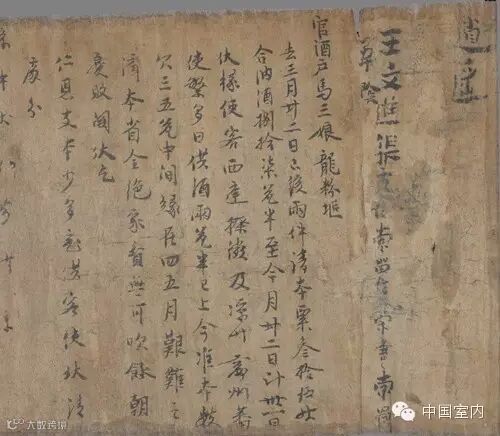 王文進張
官酒户馬三娘 龍粉堆
去三月廿二日已後兩件請本粟叁拾伍馱
合納酒捌拾柒瓮半至今月廿二日計卅一日
伏緣使客西庭摋微及涼州肅州蕃
使繁多日供酒兩瓮半已上今准本數
欠三五瓮中間緣在四五月艱難之
濟本省全絕家貲無可吹飡朝
憂敗闕伏乞
仁恩支本少多充供客使伏請
處分
大数跨境
中国室内